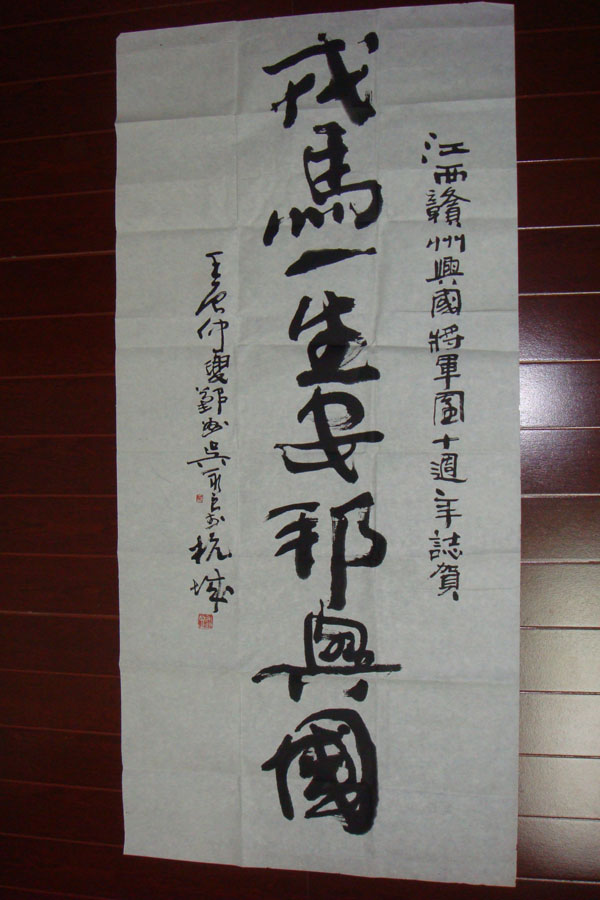 江西贛州興國將軍園十週年誌賀
戎馬一生安邦興國
壬辰仲夏鄭州吳於杭城